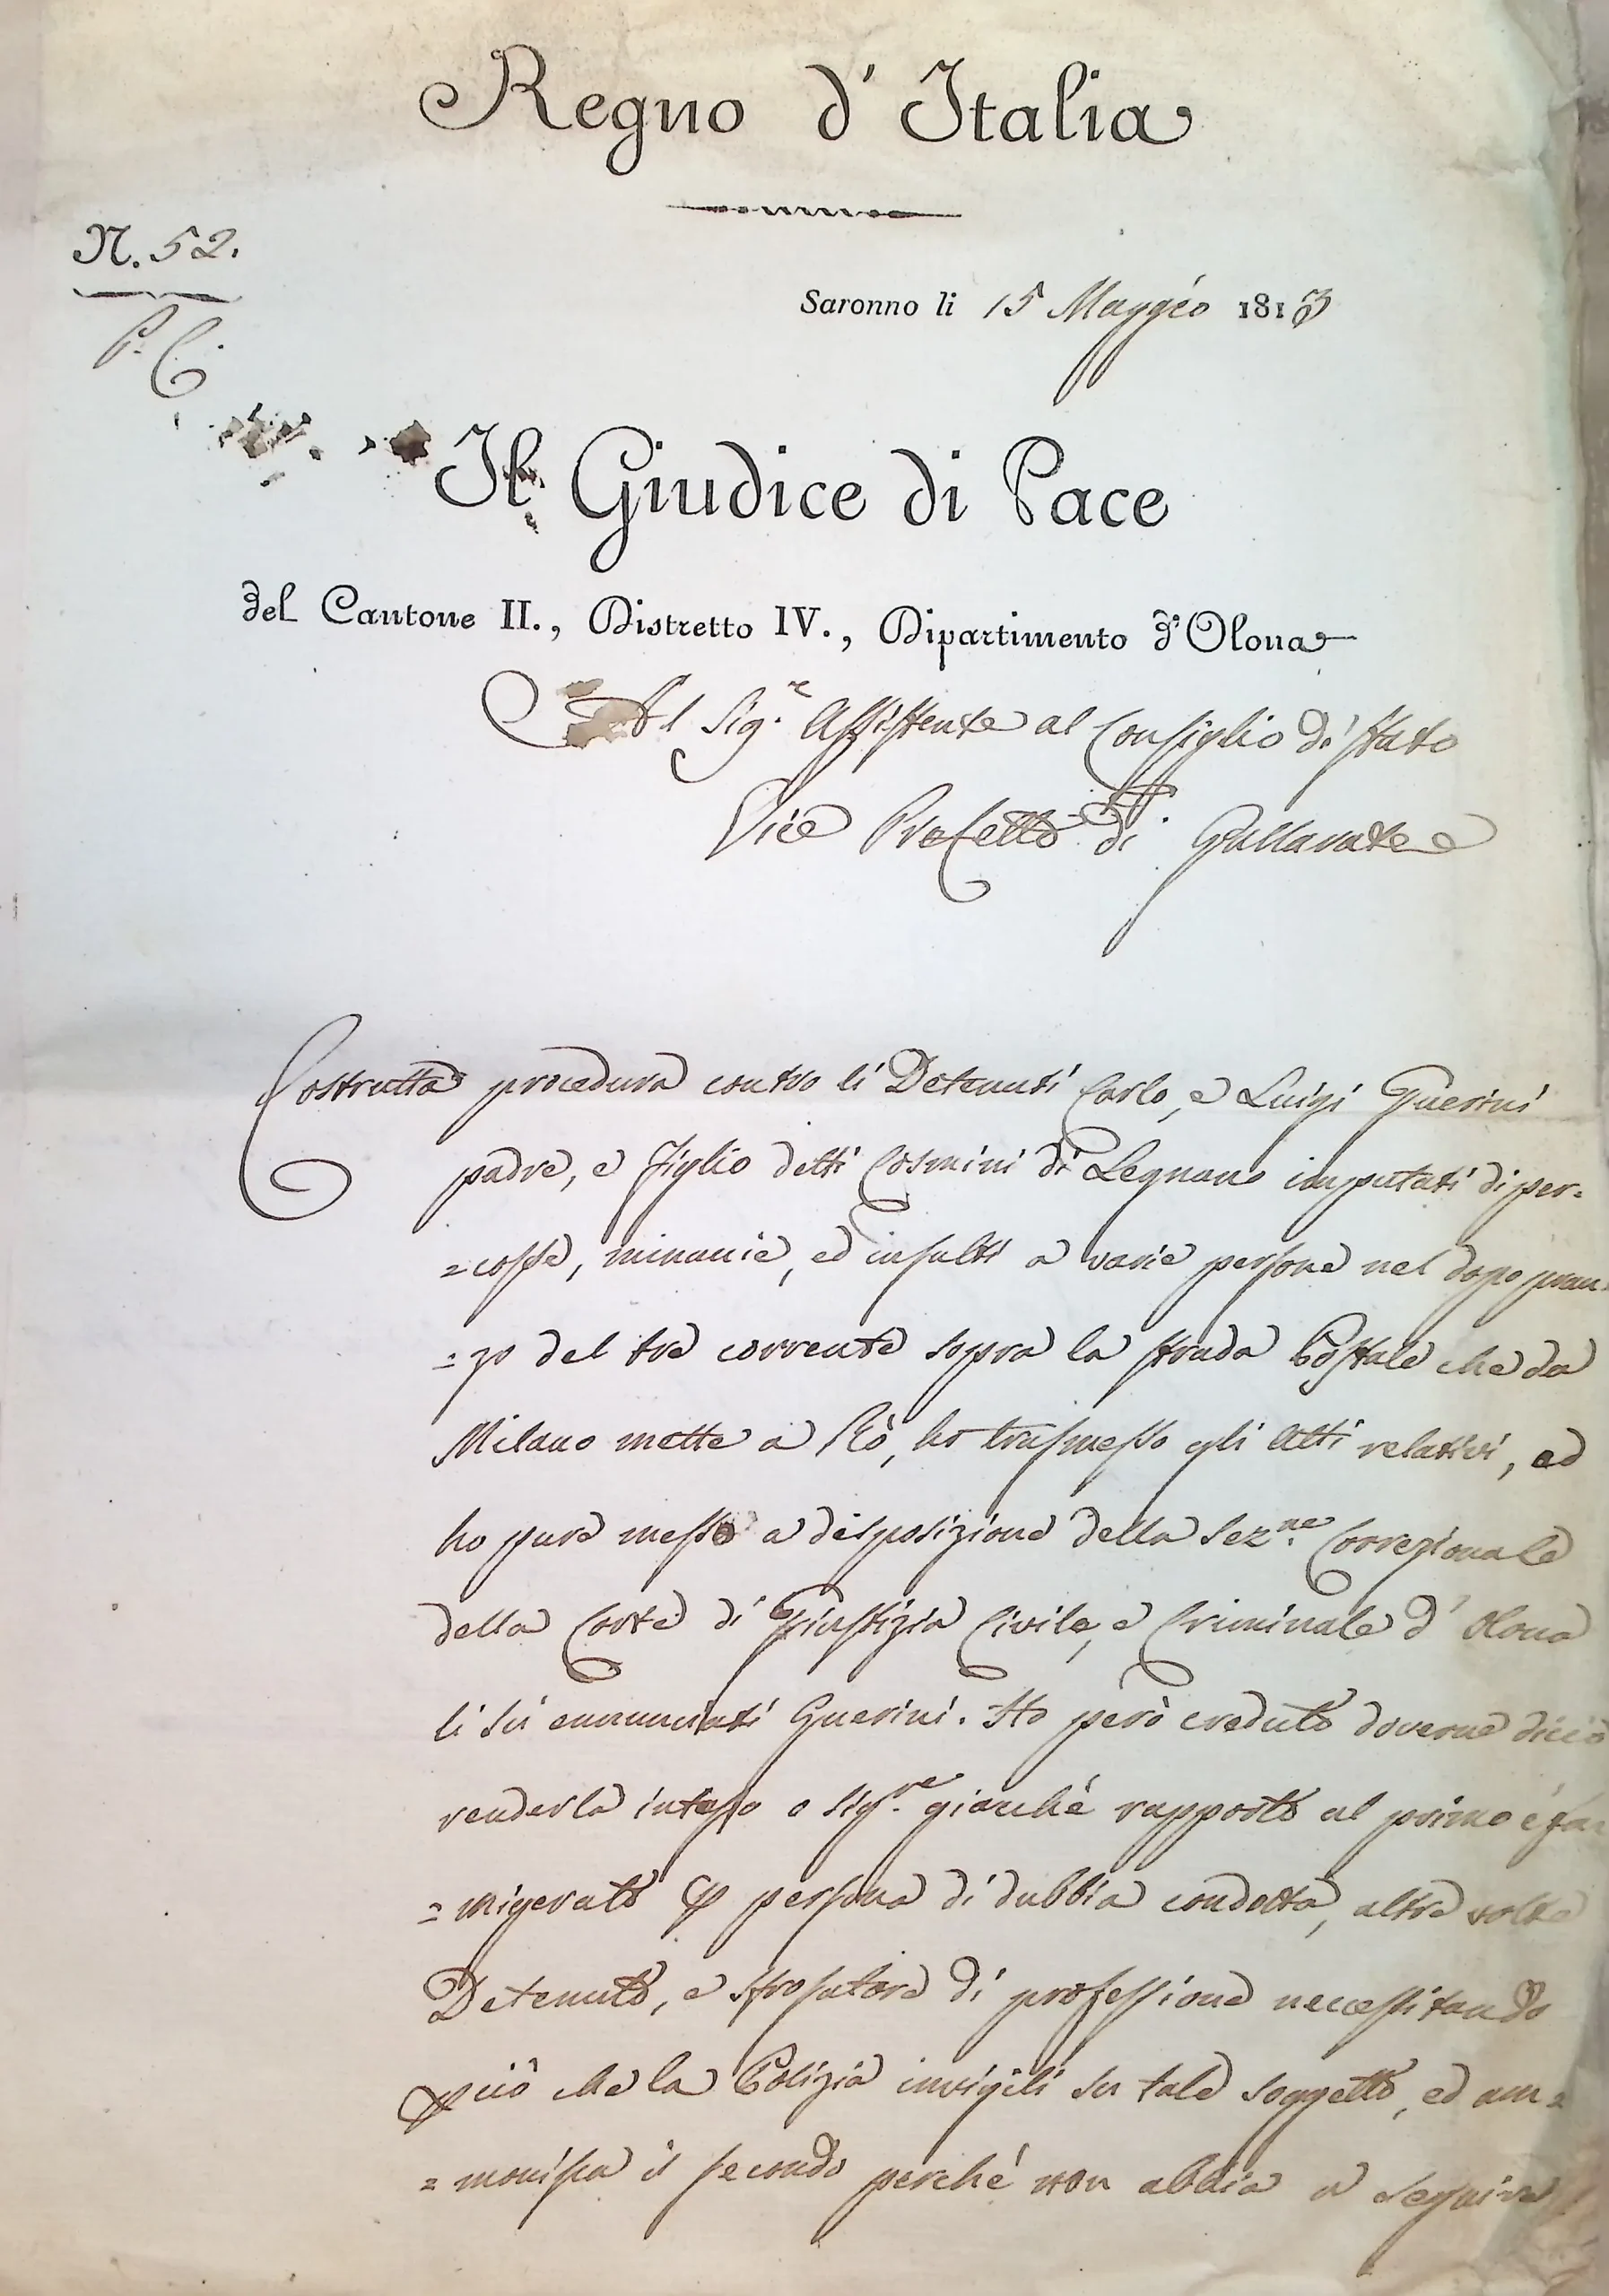 Regno d'Italia
N. 52.
P. C.
Saronno li 15 Maggio 1813
Il Giudice di Pace
del Cantone II., Distretto IV., Dipartimento d'Olona
Al Sig.r Assistente al Consiglio di Stato
Vice Prefetto di Gallarate
Costrutta procedura contro li Detenuti Carlo, e Luigi Guerini
padre, e figlio detti Cosmini di Legnano imputati di per=
=cosse, minacie, ed insulti a varie persone nel dopo pran=
=zo del tre corrente sopra la strada Postale che da
Milano mette a Rò, ho trasmesso gli Atti relativi, ed
ho pure messo a disposizione della Sez.ne Correzionale
della Corte di Giustizia Civile, e Criminale d'Olona
li sú enunciati Guerini. Ho però creduto doverne di ciò
renderla intesa o Sig.re giacché rapporto al primo è fa=
=migerato per persona di dubbia condotta, altre volte
Detenuto, e sfrosatore di professione necessitando
perciò che la Polizia invigili su tale soggetto, ed am=
=monisca il secondo perché non abbia a seguire